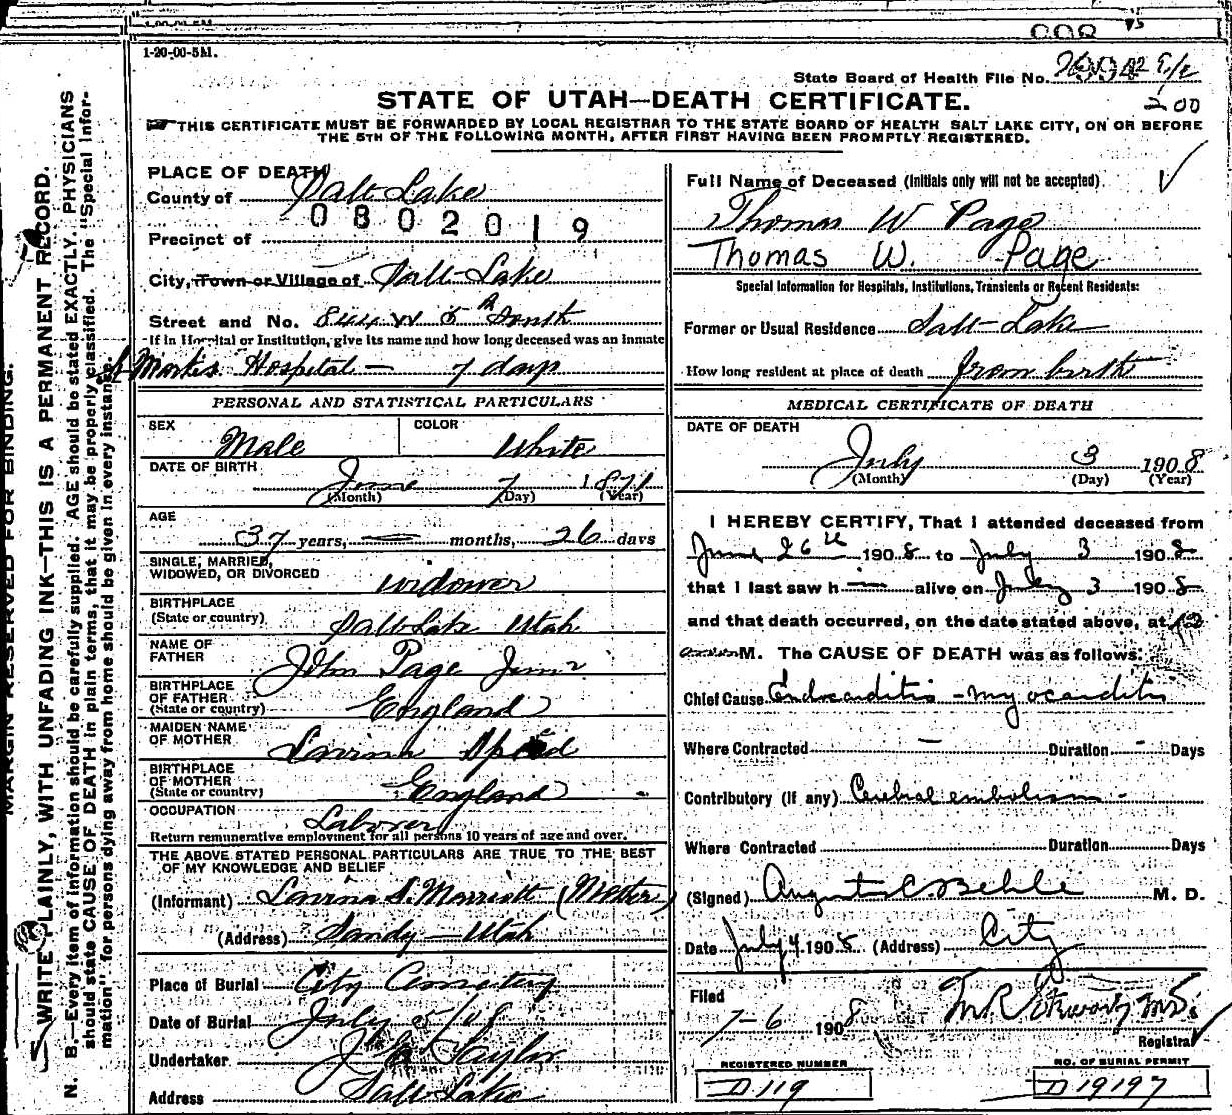 1-20-00-5M.
State Board of Health File No.
STATE OF UTAH—DEATH CERTIFICATE.
200
THIS CERTIFICATE MUST BE FORWARDED BY LOCAL REGISTRAR TO THE STATE BOARD OF HEALTH SALT LAKE CITY, ON OR BEFORE
THE 5TH OF THE FOLLOWING MONTH, AFTER FIRST HAVING BEEN PROMPTLY REGISTERED.
MARGIN RESERVED FOR BINDING.
WRITE PLAINLY, WITH UNFADING INK—THIS IS A PERMANENT RECORD.
N. B.—Every item of information should be carefully supplied. AGE should be stated EXACTLY. PHYSICIANS
should state CAUSE OF DEATH in plain terms, that it may be properly classified. The "Special Infor-
mation" for persons dying away from home should be given in every instance.
PLACE OF DEATH
County of Salt Lake
0802019
Precinct of
City, Town or Village of Salt Lake
Street and No. 844 W 5th South
If in Hospital or Institution, give its name and how long deceased was an inmate
St Marks Hospital — 7 days
PERSONAL AND STATISTICAL PARTICULARS
SEX Male COLOR White
DATE OF BIRTH June 7 1871
(Month) (Day) (Year)
AGE 37 years, — months, 26 days
SINGLE, MARRIED,
WIDOWED, OR DIVORCED widower
BIRTHPLACE
(State or country) Salt Lake Utah
NAME OF
FATHER John Page Junr
BIRTHPLACE
OF FATHER
(State or country) England
MAIDEN NAME
OF MOTHER Lavina
BIRTHPLACE
OF MOTHER
(State or country) England
OCCUPATION Laborer
Return remunerative employment for all persons 10 years of age and over.
THE ABOVE STATED PERSONAL PARTICULARS ARE TRUE TO THE BEST
OF MY KNOWLEDGE AND BELIEF
(Informant) Lavina S. Marriott (Mother)
(Address) Sandy — Utah
Place of Burial City Cemetery
Date of Burial July 5/08
Undertaker Taylor
Address Salt Lake
Full Name of Deceased (Initials only will not be accepted).
Thomas W Page
Thomas W. Page
Special Information for Hospitals, Institutions, Transients or Recent Residents:
Former or Usual Residence Salt-Lake
How long resident at place of death from birth
MEDICAL CERTIFICATE OF DEATH
DATE OF DEATH
July 3 1908
(Month) (Day) (Year)
I HEREBY CERTIFY, That I attended deceased from
June 26th 1908 to July 3 1908
that I last saw h— alive on July 3 1908
and that death occurred, on the date stated above, at
M. The CAUSE OF DEATH was as follows:
Chief Cause Endocarditis - myocarditis
Where Contracted — Duration - Days
Contributory (if any) Cerebral embolism -
Where Contracted Duration Days
(Signed) August C. Behle M. D.
Date July 4 1908 (Address) City
Filed
7-6 1908
Registrar
REGISTERED NUMBER
D 119
NO. OF BURIAL PERMIT
D 19197